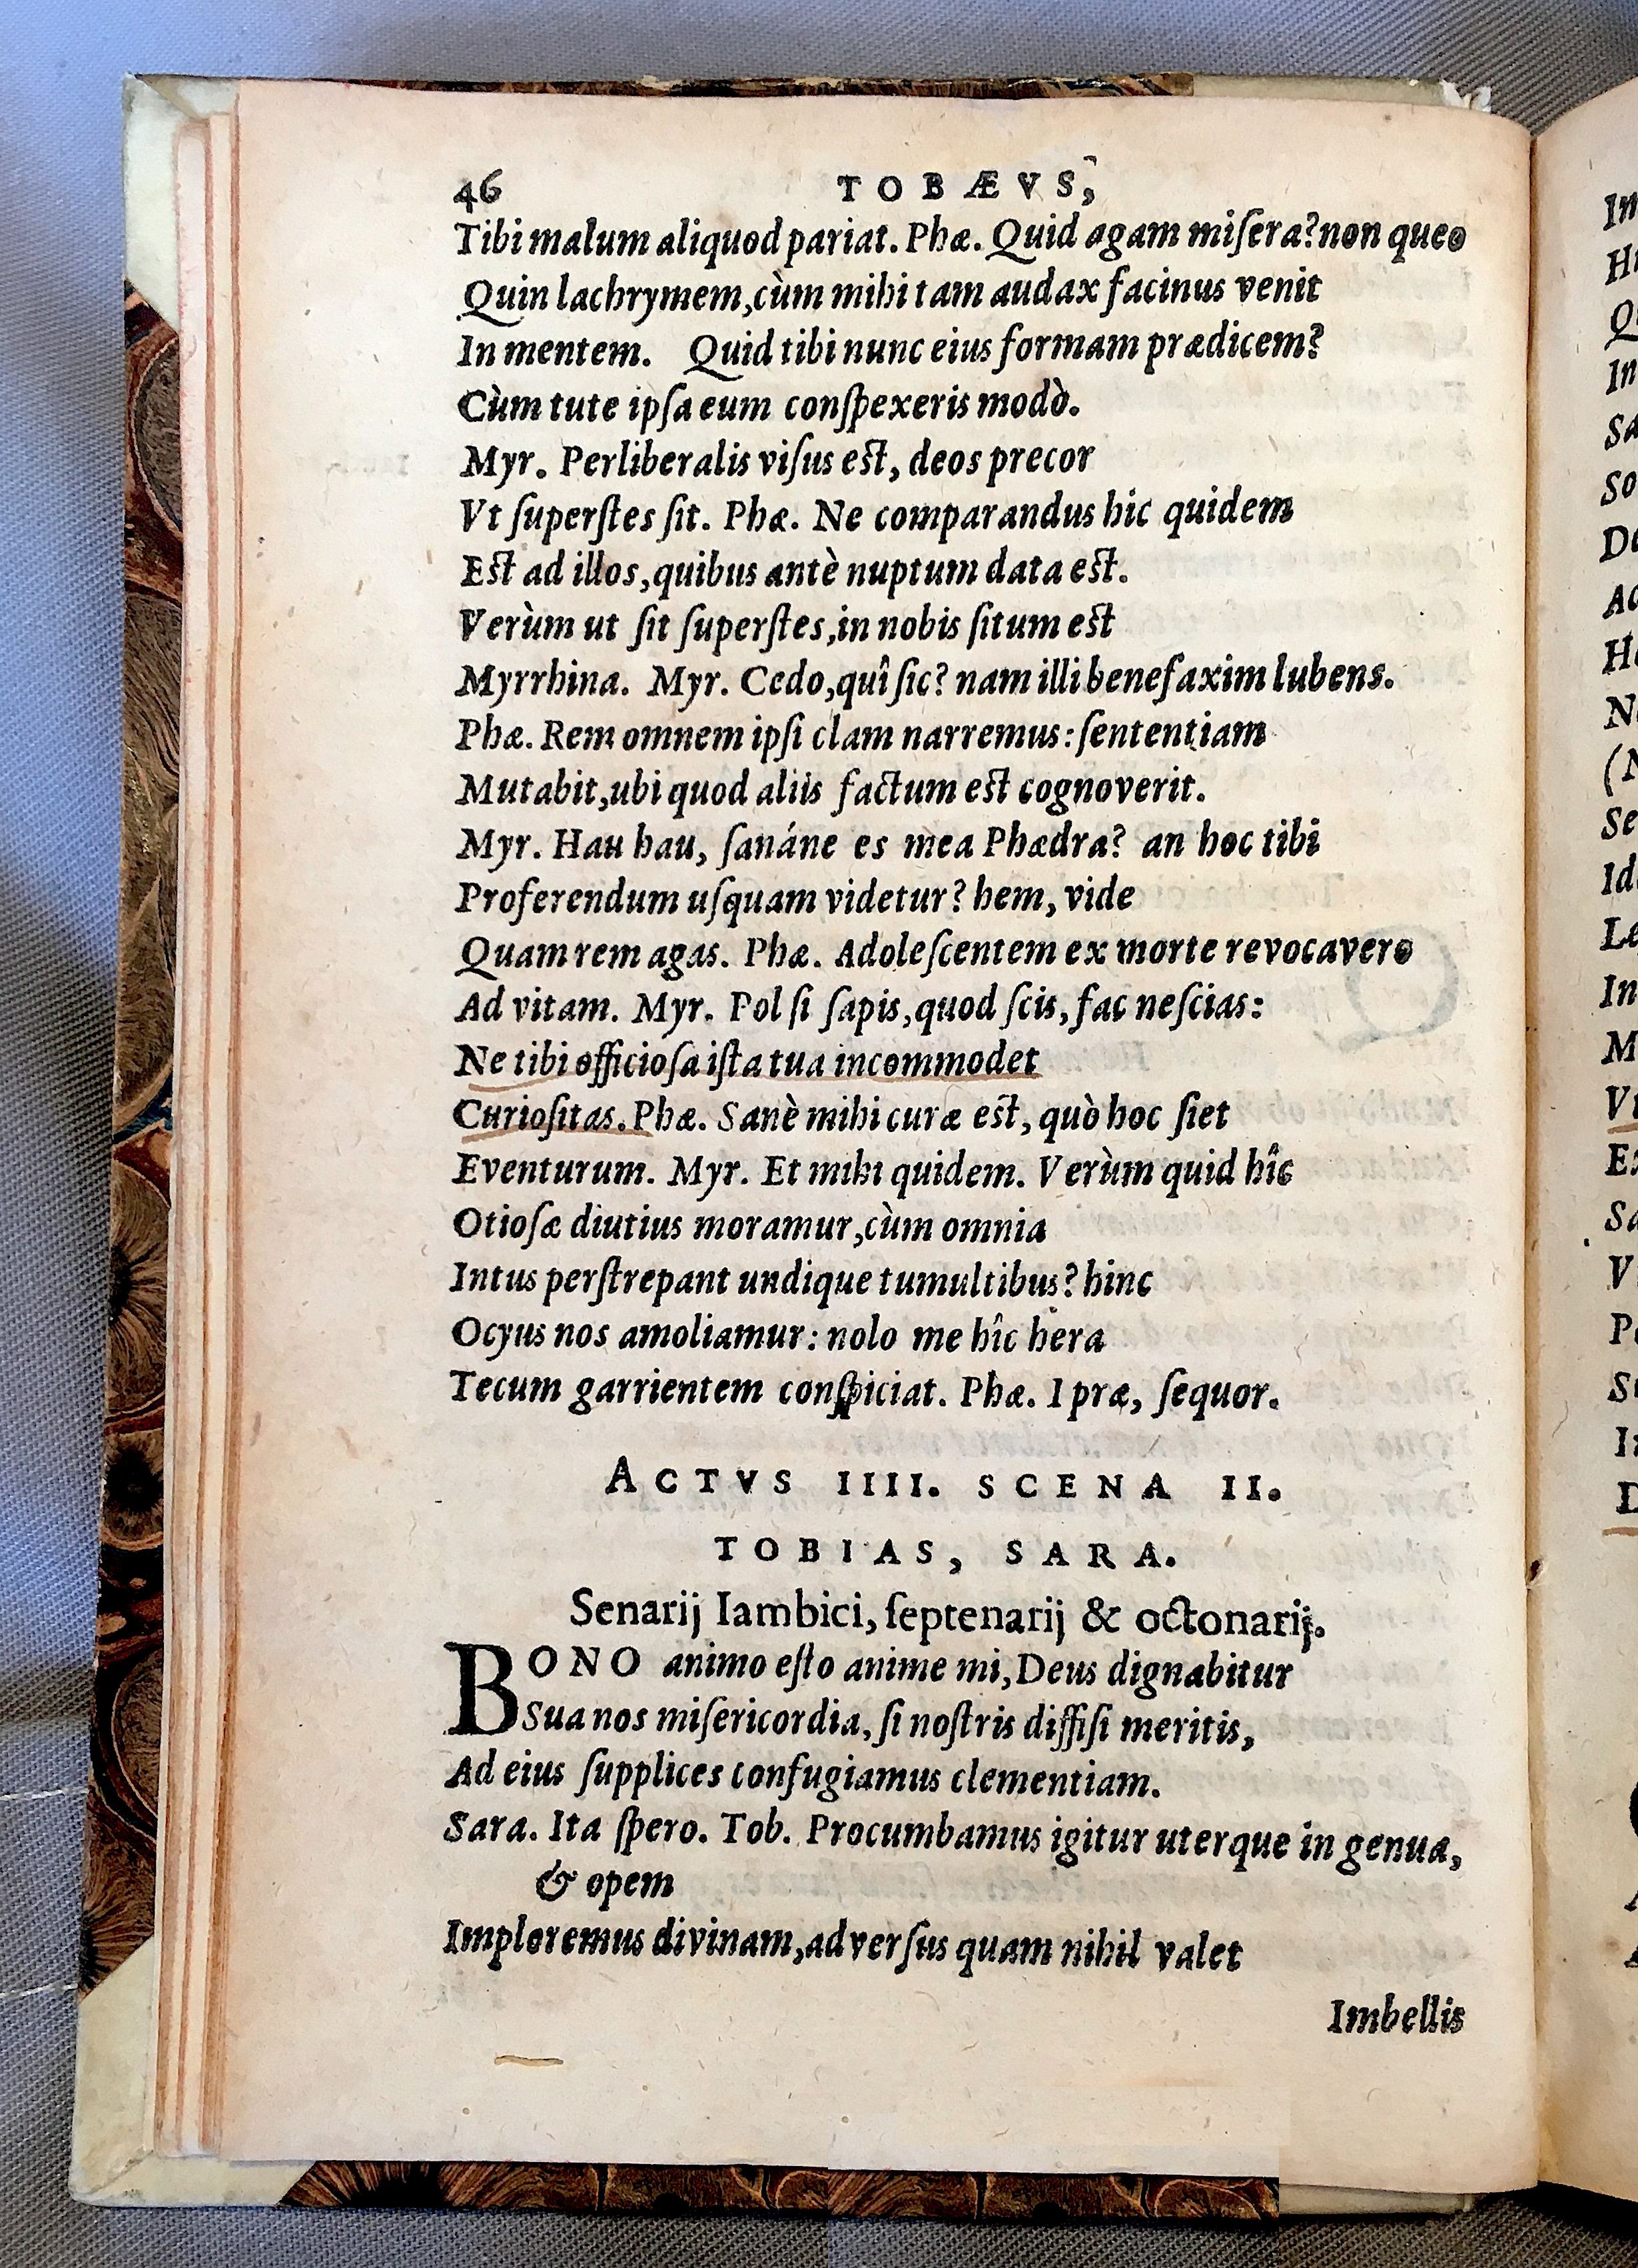 46 TOBÆVS,
Tibi malum aliquod pariat. Phæ. Quid agam miſera? non queo
Quin lachrymem, cùm mihi tam audax facinus venit
In mentem. Quid tibi nunc eius formam prædicem?
Cùm tute ipſa eum conſpexeris modò.
Myr. Perliberalis viſus est, deos precor
Vt ſuperſtes ſit. Phæ. Ne comparandus hic quidem
Est ad illos, quibus antè nuptum data est.
Verùm ut ſit ſuperſtes, in nobis ſitum est
Myrrhina. Myr. Cedo, quî ſic? nam illi benefaxim lubens.
Phæ. Rem omnem ipſi clam narremus: ſententiam
Mutabit, ubi quod aliis factum est cognoverit.
Myr. Hau hau, ſanáne es mea Phædra? an hoc tibi
Proferendum uſquam videtur? hem, vide
Quam rem agas. Phæ. Adoleſcentem ex morte revocavero
Ad vitam. Myr. Pol ſi ſapis, quod ſcis, fac neſcias:
Ne tibi officioſa iſta tua incommodet
Curioſitas. Phæ. Sanè mihi curæ est, quò hoc ſiet
Eventurum. Myr. Et mihi quidem. Verùm quid hîc
Otioſæ diutius moramur, cùm omnia
Intus perſtrepant undique tumultibus? hinc
Ocyus nos amoliamur: nolo me hîc hera
Tecum garrientem conſpiciat. Phæ. I præ, ſequor.
ACTVS IIII. SCENA II.
TOBIAS, SARA.
Senarij Iambici, ſeptenarij & octonarij.
BONO animo eſto anime mi, Deus dignabitur
Sua nos miſericordia, ſi noſtris diffiſi meritis,
Ad eius ſupplices confugiamus clementiam.
Sara. Ita ſpero. Tob. Procumbamus igitur uterque in genua,
& opem
Imploremus divinam, adverſus quam nihil valet
Imbellis